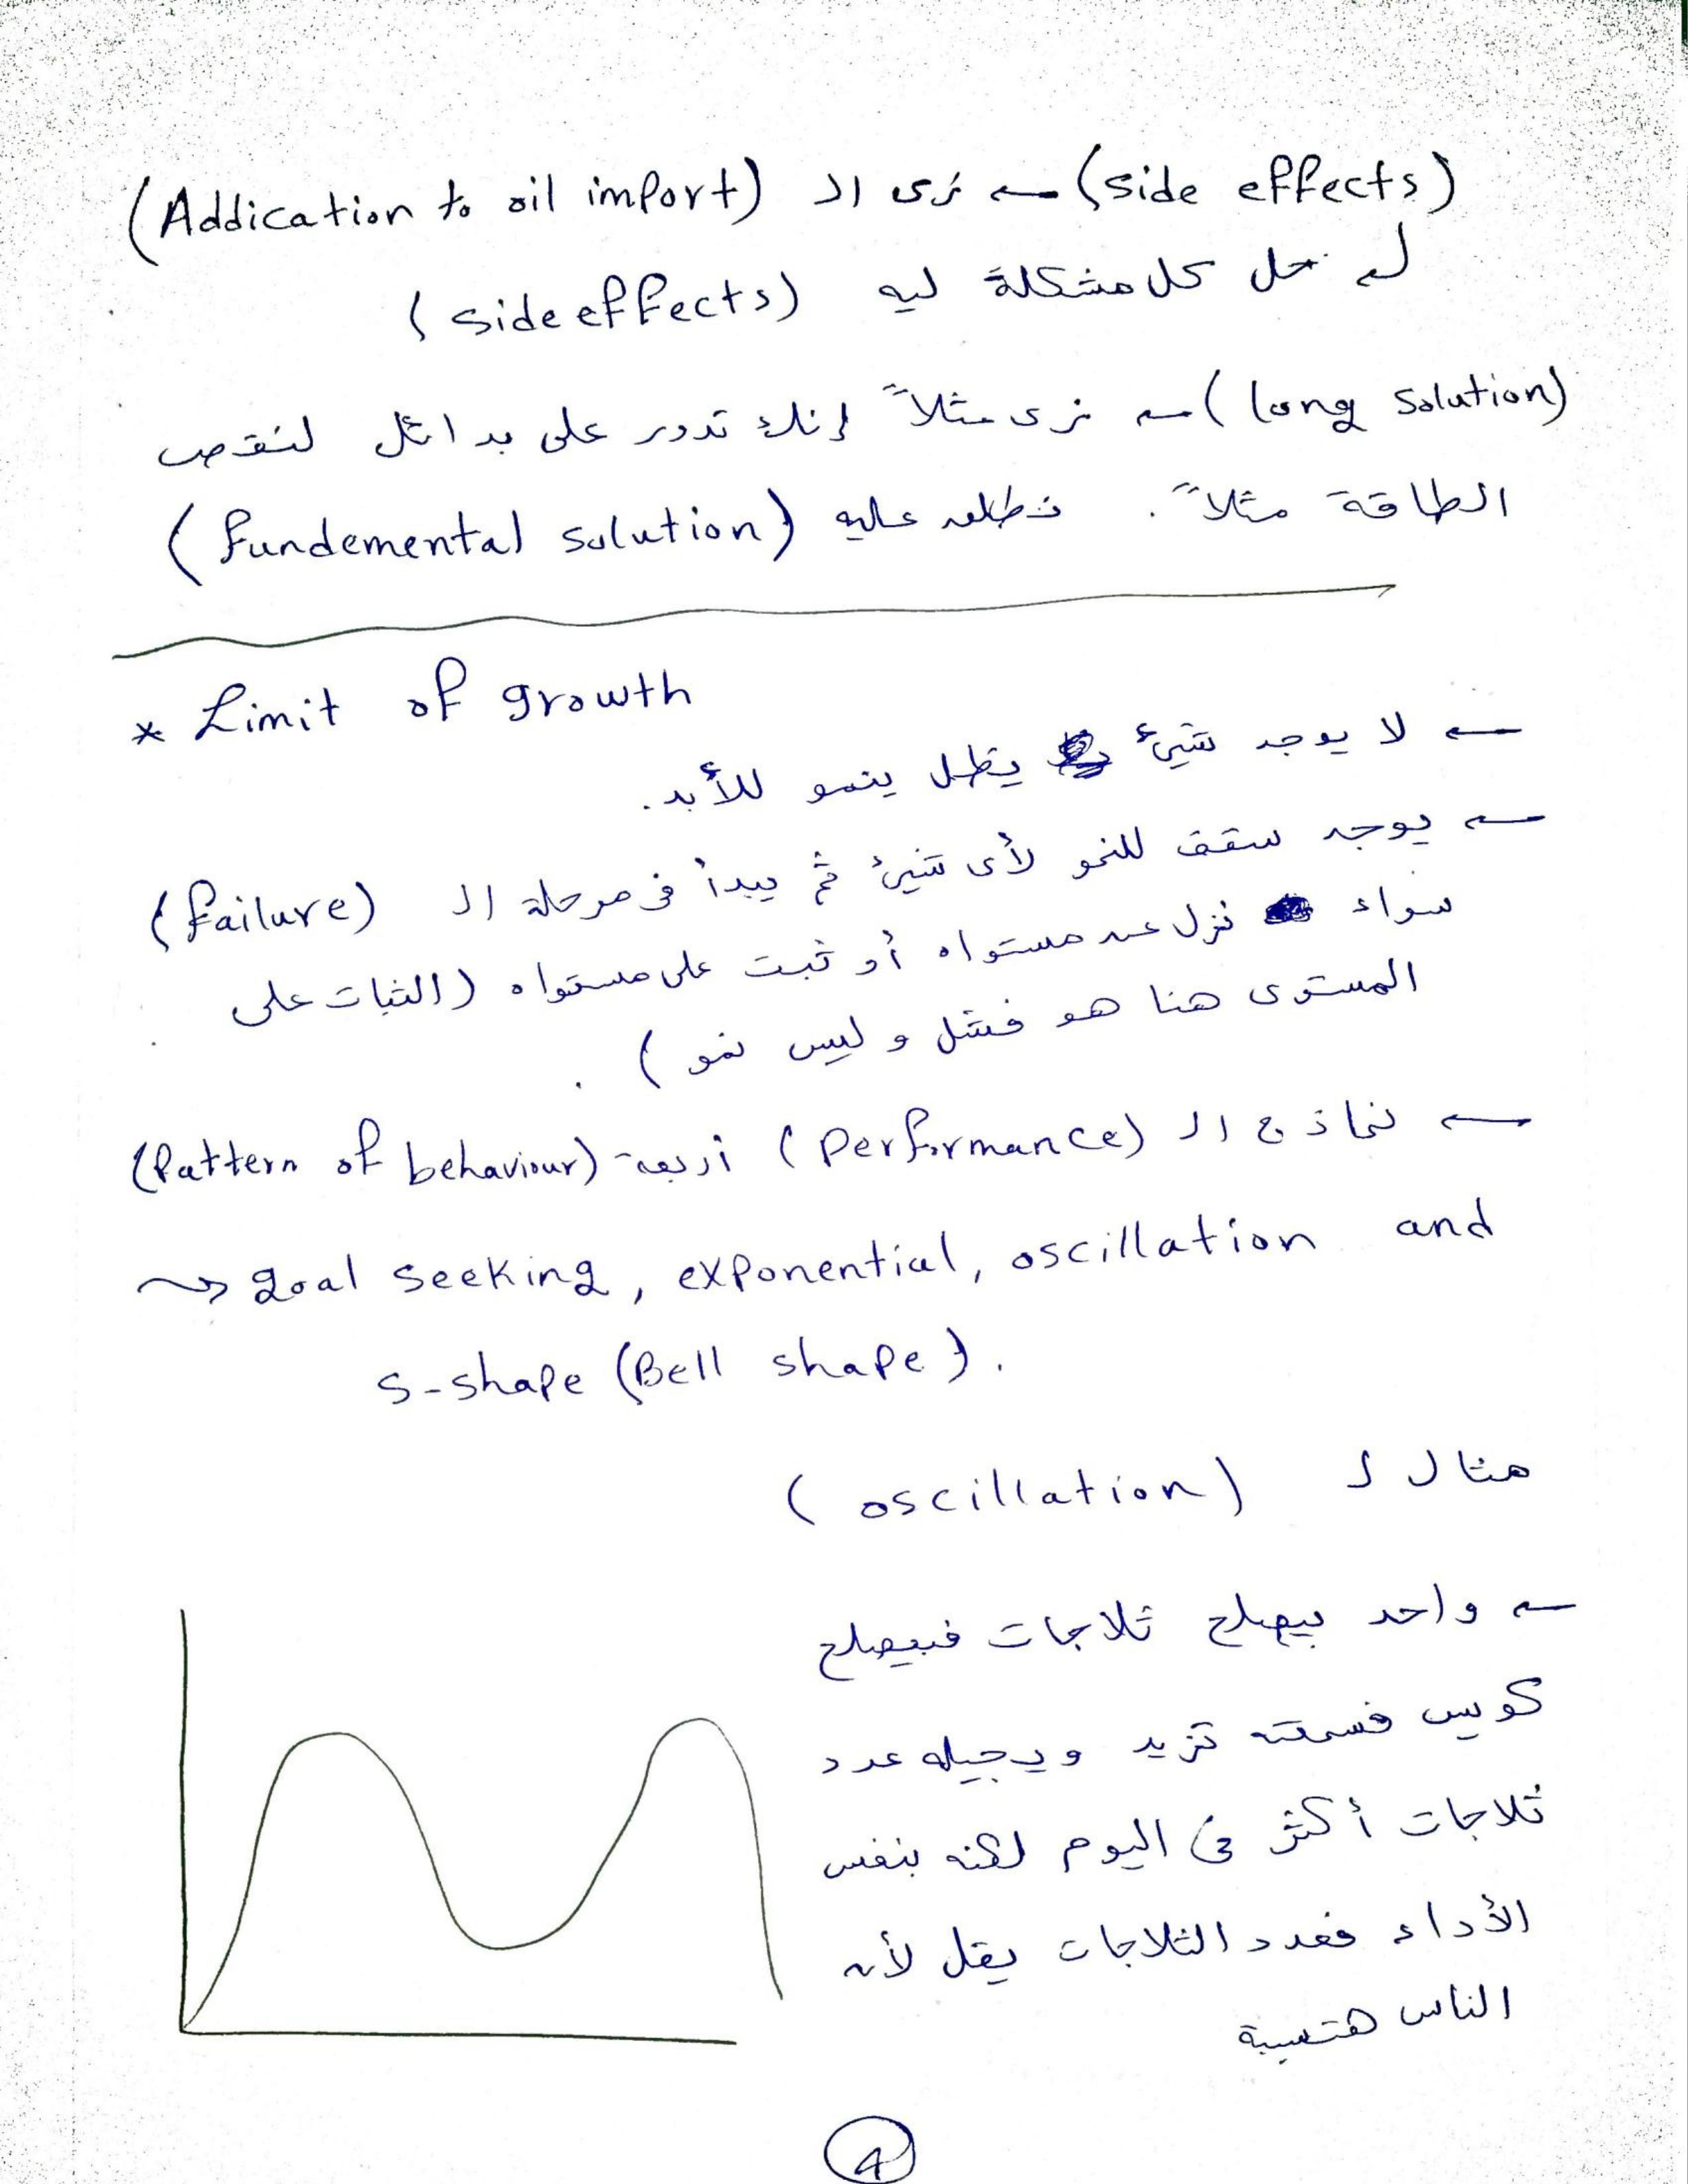 (side effects) ← زى الـ (Addication to oil import)
لـه حل كل مشكلة ليه (side effects)
(long solution) ← زى مثلاً إنك تدور على بدائل لنقص
الطاقة مثلاً. فنطلق عليه (fundemental solution)
* Limit of growth
← لا يوجد شيئ يظل ينمو للأبد.
← يوجد سقف للنمو لأى شيئ ثم يبدأ فى مرحلة الـ (failure)
سواء نزل عن مستواه أو ثبت على مستواه (الثبات على
المستوى هنا هو فشل و ليس نمو).
← نماذج الـ (Performance) أربعة (Pattern of behaviour)
↝ goal seeking, exponential, oscillation and
S-shape (Bell shape).
مثال لـ (oscillation)
← واحد بيصلح ثلاجات فبيصلح
كويس فسمعته تزيد ويجيله عدد
ثلاجات أكثر فى اليوم لكنه بنفس
الأداء فعدد الثلاجات يقل لأن
الناس هتسيبة
4